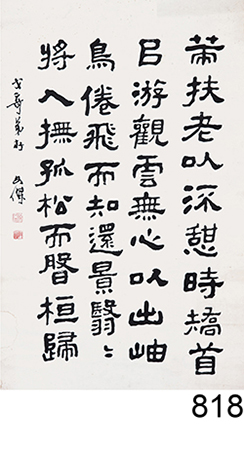 策扶老以流憩時矯首
㠯游觀雲無心以出岫
鳥倦飛而知還景翳〻
將入撫孤松而盤桓歸
818